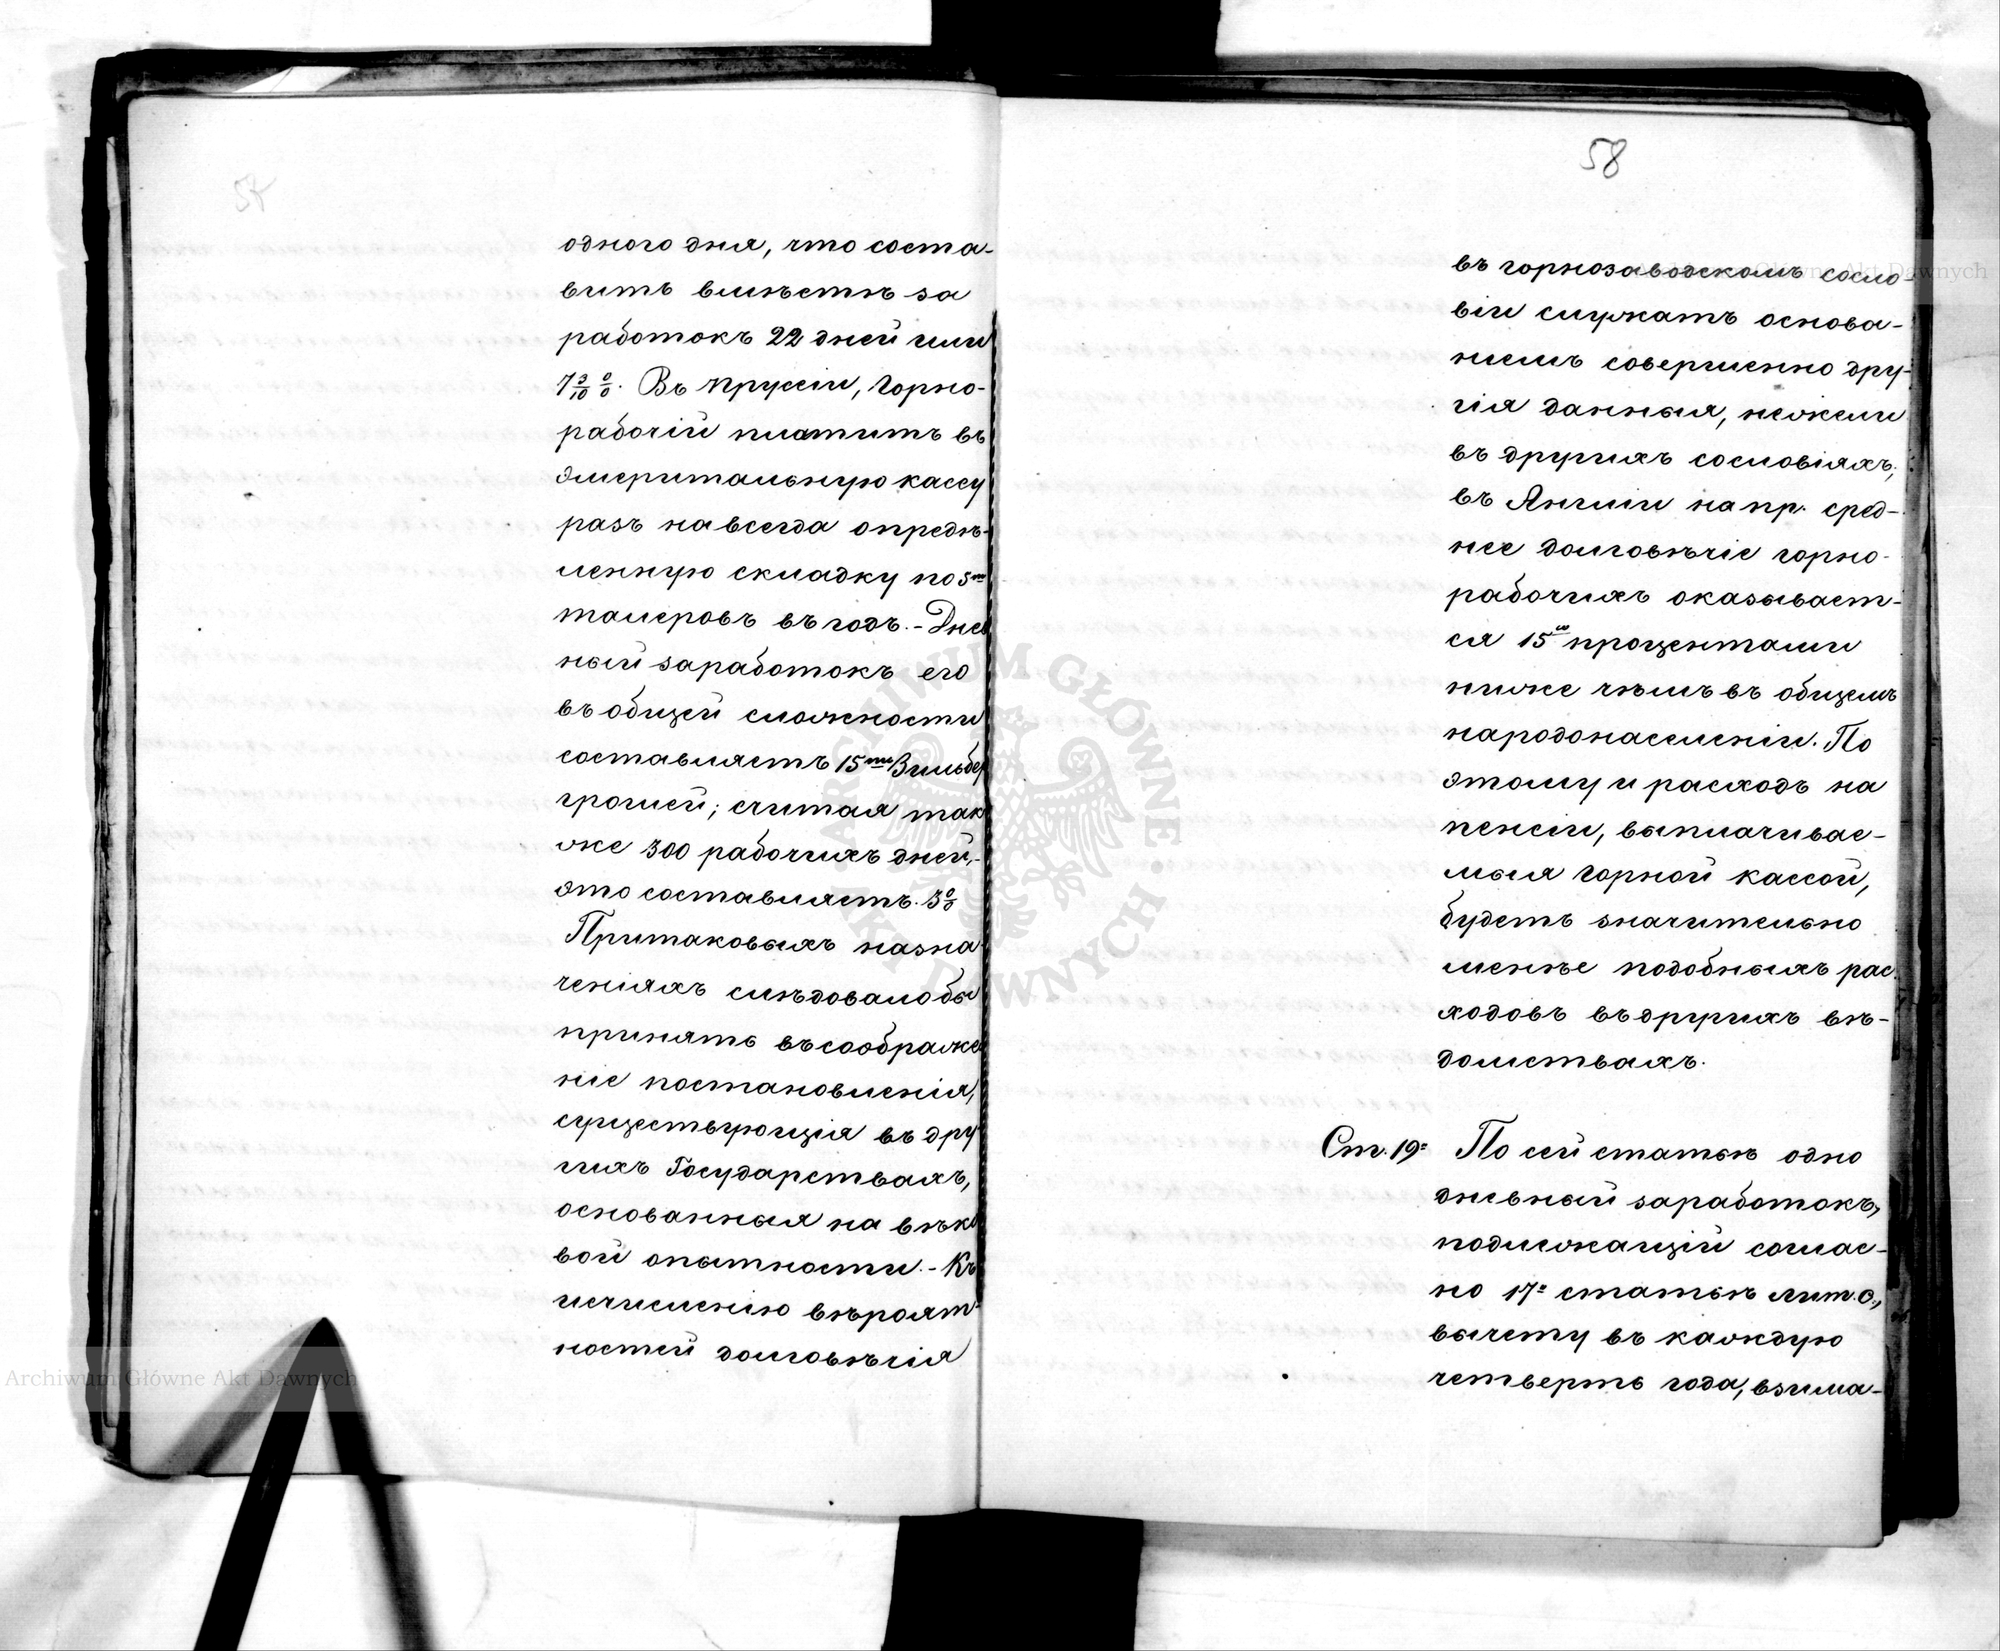 одного дня, что соста-
витъ вмѣстѣ за
работокъ 22 дней или
7 3/10 0/0. Въ Пруссіи, Горно-
рабочій платитъ въ
эмеритальную кассу
разъ навсегда опредѣ-
ленную складку по 5ть
талеровъ въ годъ. - Днев
ный заработокъ его
въ общей сложности
составляетъ 15ть Зильбер
грошей; считая так
же 300 рабочихъ дней, -
это составляетъ. 3 0/0
При таковыхъ назна
ченіяхъ слѣдовало бы
принять въ соображе
ніе постановленія,
существующія въ дру
гихъ Государствахъ,
основанныя на вѣко
вой опытности. - Къ
исчисленію вѣроят-
ностей долговѣчія
58
въ горнозаводскомъ сосло-
віи служатъ основа-
ніемъ совершенно дру-
гія данныя, нежели
въ другихъ сословіяхъ;
въ Англіи напр. сред-
нее долговѣчіе горно-
рабочихъ оказывает-
ся 15ю процентами
ниже чѣмъ въ общемъ
народонаселеніи. По
этому и расходъ на
пенсіи, выплачивае-
мыя Горной кассой,
будетъ значительно
менѣе подобныхъ рас
ходовъ въ другихъ вѣ-
домствахъ.
Ст. 19= По сей статьѣ одно
дневный заработокъ,
подлежащій соглас-
но 17= статьѣ лит. С.,
вычету въ каждую
четверть года, взима-
Archiwum Główne Akt Dawnych
Archiwum Główne Akt Dawnych
ARCHIWUM GŁÓWNE AKT DAWNYCH